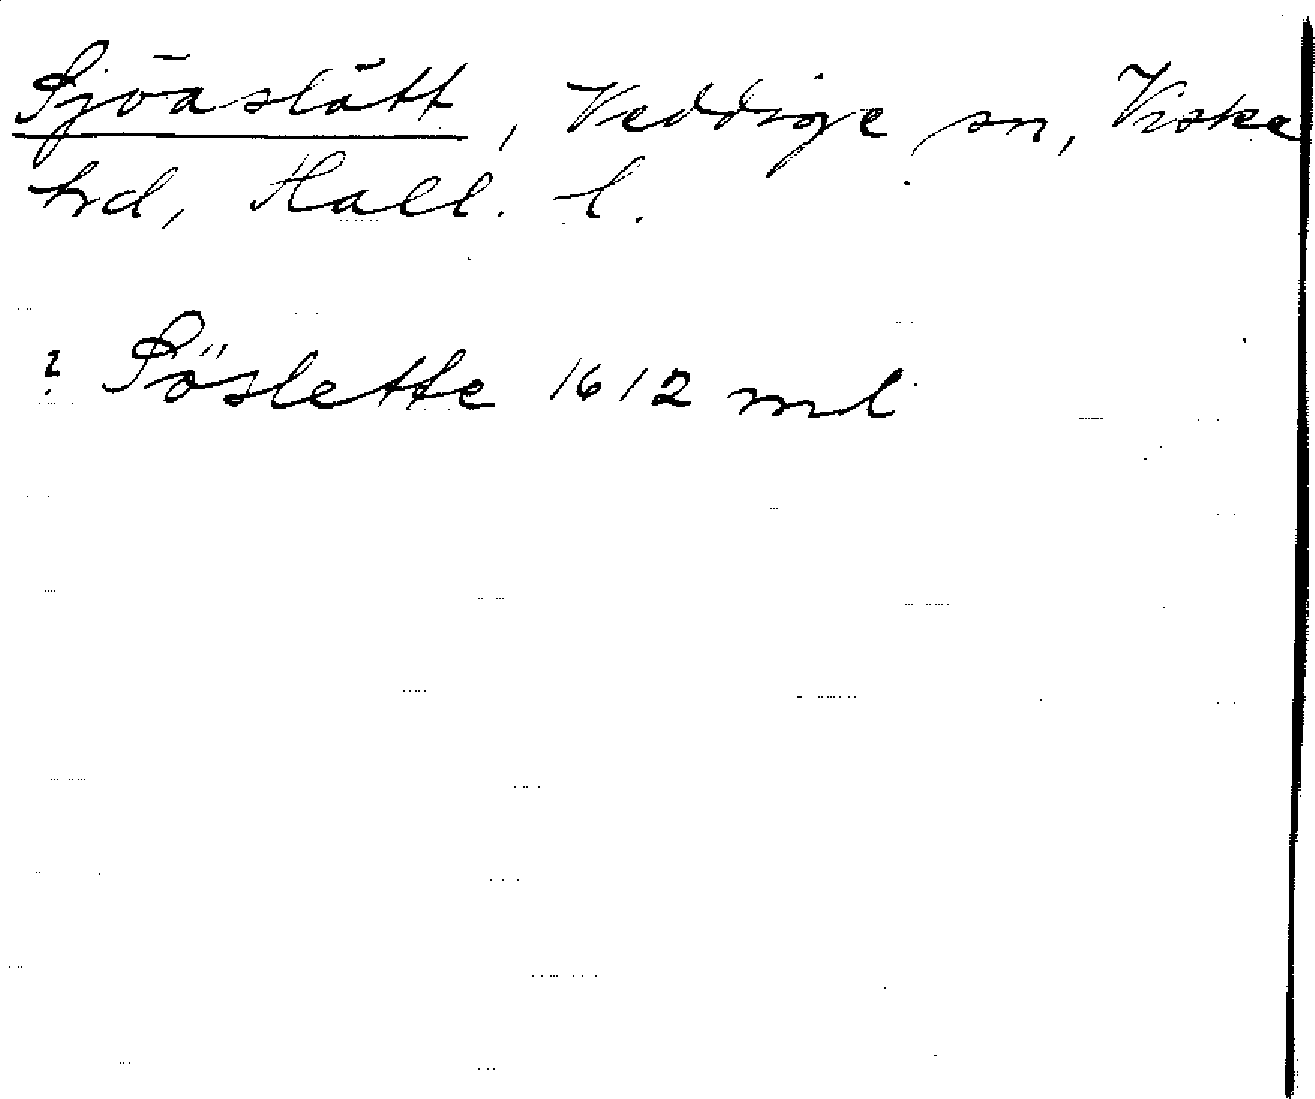 Sjöaslätt, Veddige sn, Viske
hrd, Hall. l.
? Söslette 1612 ml